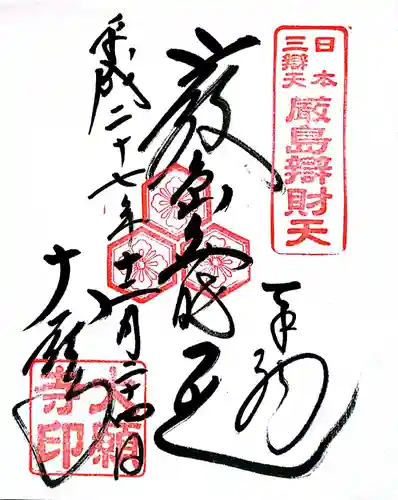 日本
三辯天
厳島辯財天
奉拝
厳島弁財天
平成二十七年十一月二十四日
大願寺
大願寺印